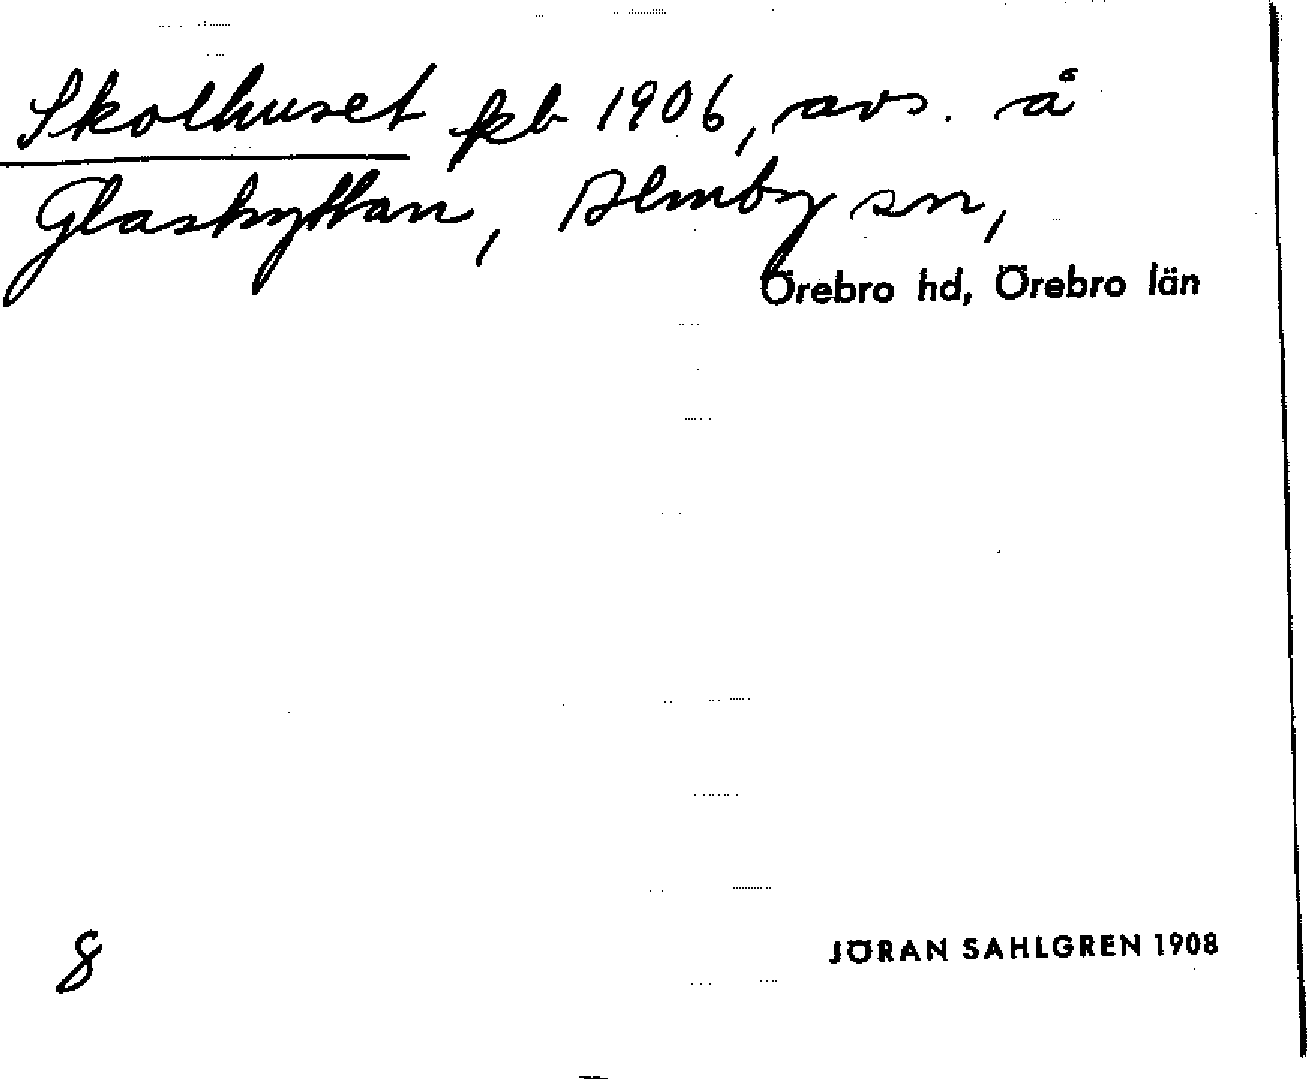 Skolhuset fkb 1906, avs. å
Glashyttan, Almby sn,
Örebro hd, Örebro län
8
JÖRAN SAHLGREN 1908